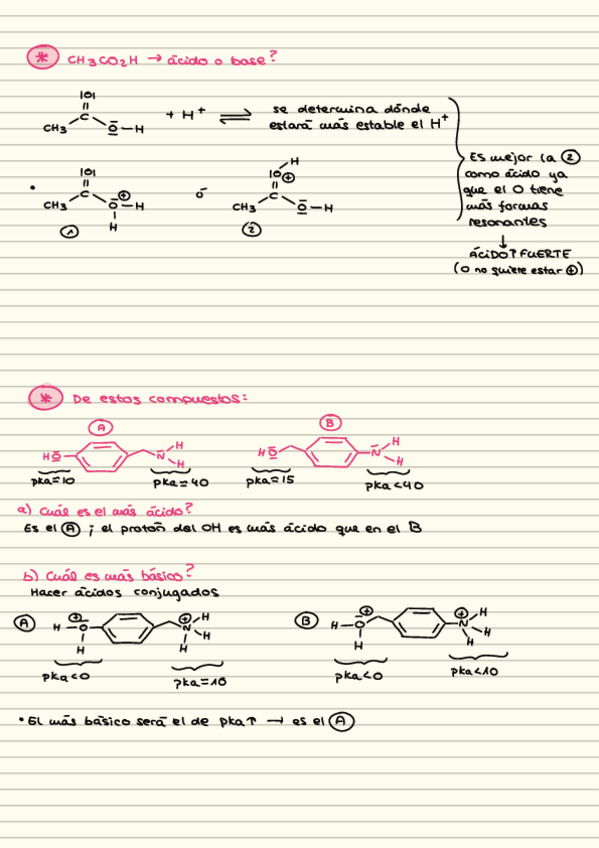 * CH3CO2H → ácido o base?
|O|
CH3 C O̅ — H + H⁺ ⇌ se determina dónde
estará más estable el H⁺
Es mejor la ②
como ácido ya
que el O tiene
más formas
resonantes
↓
ÁCIDO↑ FUERTE
(O no quiere estar ⊕)
• |O| CH3 C O̅ ⊕ — H H ①
ó
H |O ⊕ CH3 C O̅ — H ②
* De estos compuestos:
Ⓐ
HO̅ N̅ H H
pka=10 pka=40
Ⓑ
HO̅ N̅ H H
pka=15 pka<40
a) Cuál es el más ácido?
Es el Ⓐ ; el protón del OH es más ácido que en el B
b) Cuál es más básico?
Hacer ácidos conjugados
Ⓐ H — O̅ ⊕ H N ⊕ H H H
pka<0 pka=10
Ⓑ H — O̅ ⊕ H N ⊕ H H H
pka<0 pka<10
• El más básico será el de pka↑ → es el Ⓐ